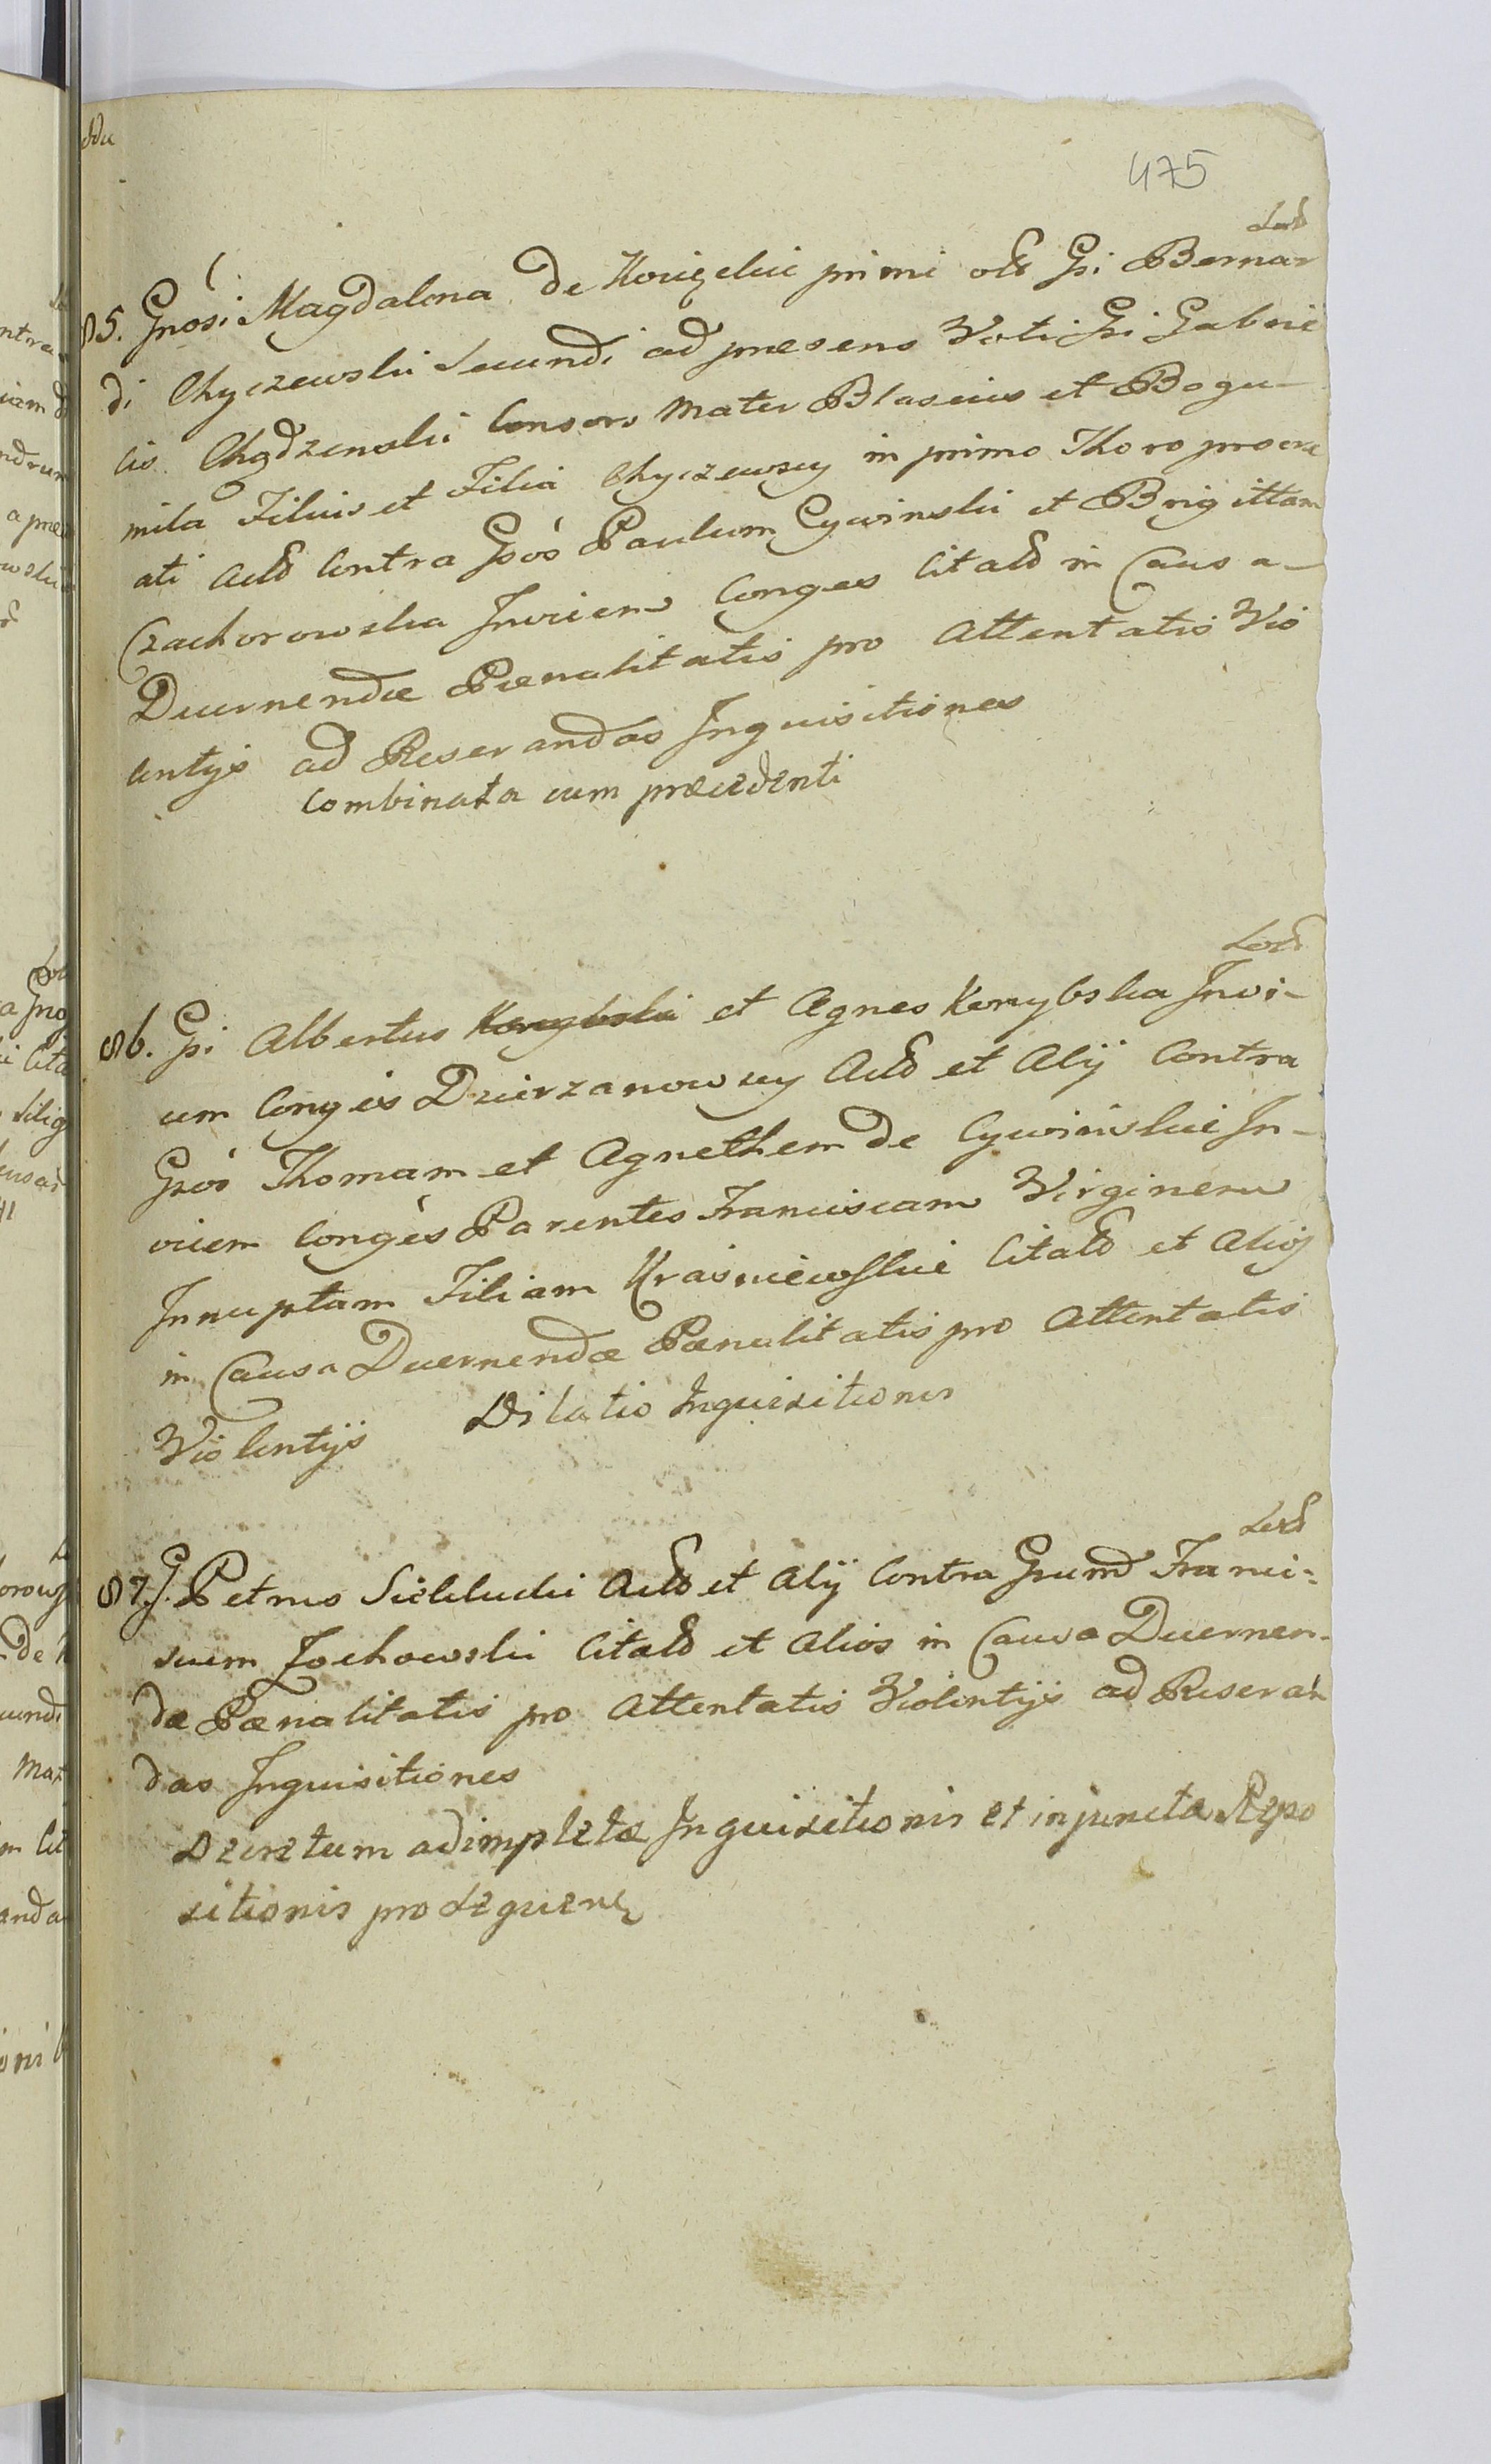 475
85. Gnosi Magdalena de Kouizelui primi olt Gsi Bernar
di Chyczewski Secundi ad præsens Voti Gsi Gabrie
lis Chądzenski Consors Mater Blasius et Bogu-
mila Filius et Filia Chyczewscy in primo Thoro procre
ati Actt Contra Gsos Paulum Cywinski et Brigittam
Czachorowska Invicem Conges Citatt in Causa-
Decernendæ Pœnalitatis pro Attentatis Vio
lentijs ad Reserandas Inquisitiones
Combinata cum præcedenti
86. Gsi Albertus et Agnes Korzybska Invi-
cem Conges Dzierzanowscy Actt et Alij Contra
Gsos Thomam et Agnethem de Cywinskie In-
vicem Conges Parentes Franciscam Virginem
Innuptam Filiam Krasniewskie Citatt et Alios
in Causa Decernendæ Pœnalitatis pro Attentatis
Violentijs Dilatio Inquisitionis
87. G. Petrus Sieklucki Actt et Alij Contra Gsumd Franci=
scum Jochowski Citatt et Alios in Causa Decernen-
dæ Pœnalitatis pro Attentatis Violentijs ad Reseran
das Inquisitiones
Decretum adimpletæ Inquisitionis et injunctæ Repo
sitionis pro